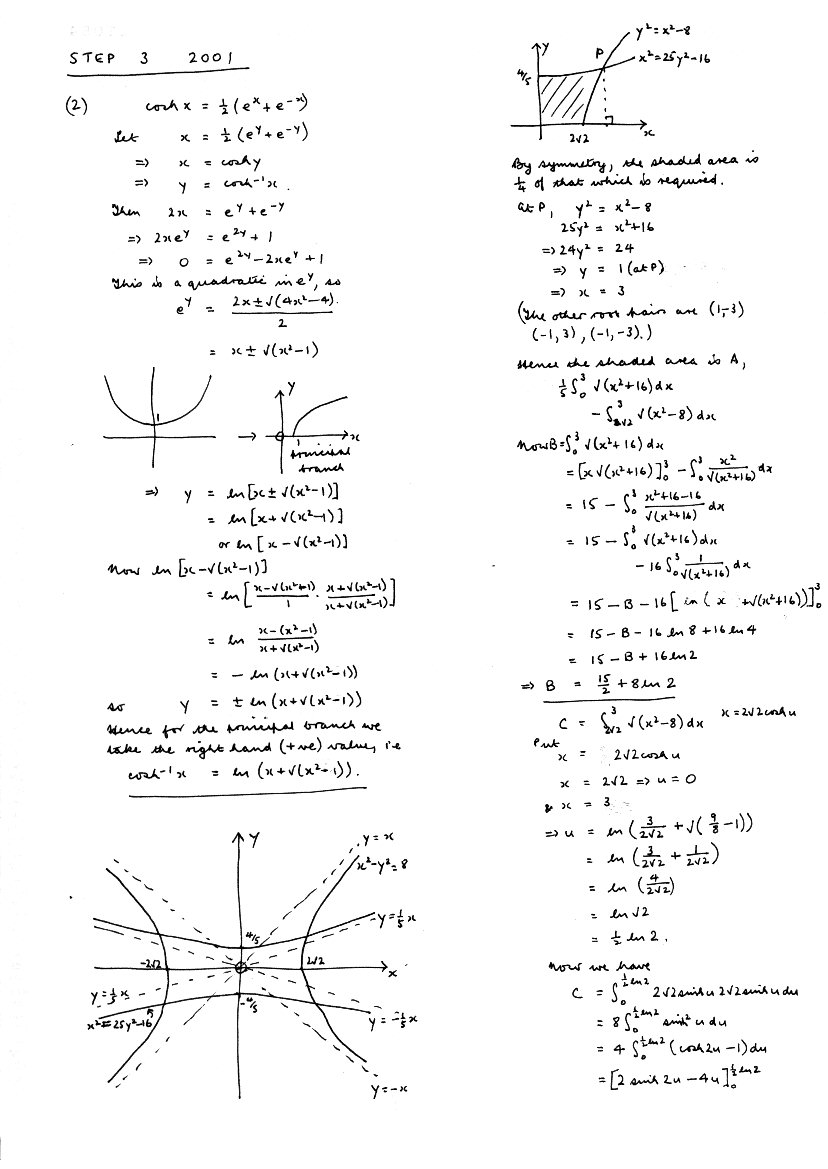 STEP 3 2001
(2) cosh x = ½ (eˣ + e⁻ˣ)
Let x = ½ (eʸ + e⁻ʸ)
⇒ x = cosh y
⇒ y = cosh⁻¹x.
Then 2x = eʸ + e⁻ʸ
⇒ 2xeʸ = e²ʸ + 1
⇒ 0 = e²ʸ − 2xeʸ + 1
This is a quadratic in eʸ, so
eʸ = (2x ± √(4x² − 4)) / 2.
= x ± √(x² − 1)
1
→
y
1
x
principal
branch
⇒ y = ln [x ± √(x² − 1)]
= ln [x + √(x² − 1)]
or ln [x − √(x² − 1)]
Now ln [x − √(x² − 1)]
= ln [ (x − √(x² + 1)) / 1 · (x + √(x² − 1)) / (x + √(x² − 1)) ]
= ln (x − (x² − 1)) / (x + √(x² − 1))
= − ln (x + √(x² − 1))
so y = ± ln (x + √(x² − 1))
Hence for the principal branch we
take the right hand (+ve) value, i.e
cosh⁻¹x = ln (x + √(x² − 1)).
y
y = x
x² − y² = 8
y = ⅕ x
4/5
−2√2
2√2
x
y = ⅕ x
−4/5
x² = 25y² − 16
y = −⅕ x
y = −x
y² = x² − 8
y
P
x² = 25y² − 16
4/5
2√2
x
By symmetry, the shaded area is
¼ of that which is required.
At P, y² = x² − 8
25y² = x² + 16
⇒ 24y² = 24
⇒ y = 1 (at P)
⇒ x = 3
(The other root pairs are (1,−3)
(−1, 3), (−1, −3).)
Hence the shaded area is A,
⅕ ∫₀³ √(x² + 16) dx
− ∫_{2√2}^3 √(x² − 8) dx
Now B = ∫₀³ √(x² + 16) dx
= [x √(x² + 16)]₀³ − ∫₀³ x² / √(x² + 16) dx
= 15 − ∫₀³ (x² + 16 − 16) / √(x² + 16) dx
= 15 − ∫₀³ √(x² + 16) dx
− 16 ∫₀³ 1 / √(x² + 16) dx
= 15 − B − 16 [ ln ( x + √(x² + 16))]₀³
= 15 − B − 16 ln 8 + 16 ln 4
= 15 − B + 16 ln 2
⇒ B = 15/2 + 8 ln 2
C = ∫_{2√2}^3 √(x² − 8) dx x = 2√2 cosh u
Put
x = 2√2 cosh u
x = 2√2 ⇒ u = 0
& x = 3
⇒ u = ln ( 3/(2√2) + √( 9/8 − 1))
= ln ( 3/(2√2) + 1/(2√2) )
= ln ( 4/(2√2) )
= ln √2
= ½ ln 2.
Now we have
C = ∫₀^{½ ln 2} 2√2 sinh u 2√2 sinh u du
= 8 ∫₀^{½ ln 2} sinh² u du
= 4 ∫₀^{½ ln 2} (cosh 2u − 1) du
= [2 sinh 2u − 4u]₀^{½ ln 2}